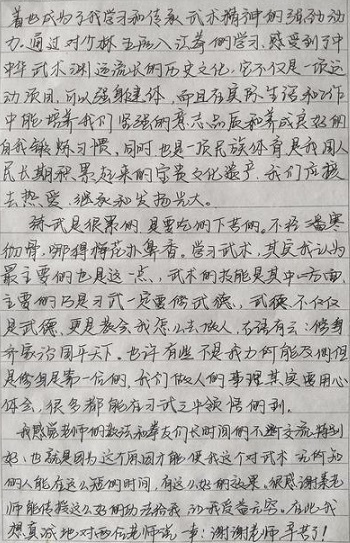 着也成为了我学习和传承武术精神的强劲动
力。通过对竹林五形八法拳的学习,感受到了中
华武术渊远流长的历史文化,它不仅是一项运
动项目,可以强身健体,而且在实际生活和工作
中能培养我们坚强的意志品质和养成良好的
自我锻炼习惯,同时也是一项民族体育是我国人
民长期积累起来的宝贵文化遗产,我们应该
去热爱、继承和发扬光大。
练武是很累的,是要吃的下苦的。不经一番寒
彻骨,哪得梅花扑鼻香。学习武术,其实我认为
最主要的也是这一点,武术的技能是其中一方面,
主要的还是习武一定要修武德,武德不仅仅
是武德,更是教会我怎么去做人,古语有云:修身
齐家治国平天下。也许有些不是我力所能及的但
是修身是第一位的,我们做人的事理其实要用心
体会,很多都能在习武之中领悟的到。
我感觉老师的教法和拳友们长时间的不断交流特别
好,也就是因为这个原因才能使我这个对武术一无所知
的人能在这么短的时间,有这么好的效果。很感谢老
师能传授这么好的功法给我,让我受益无穷。在此我
想真诚地对两位老师说一声:谢谢老师辛苦了!